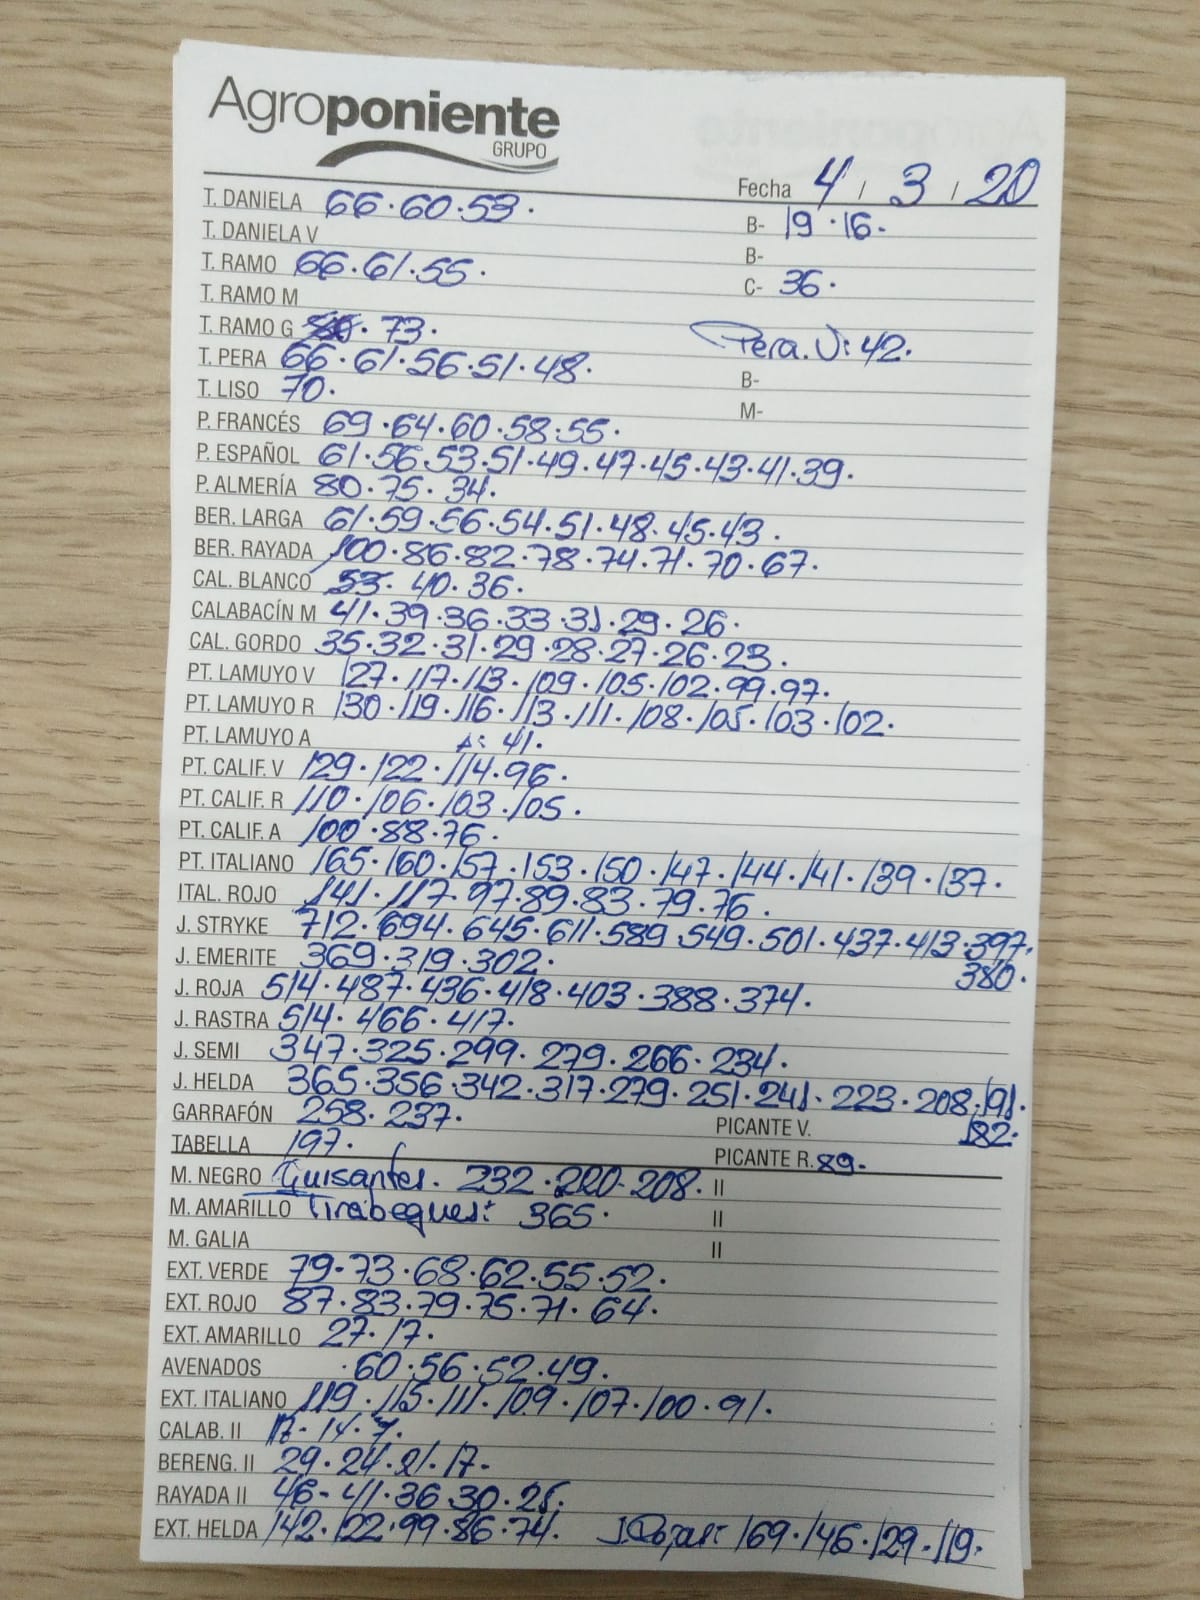 Agroponiente
GRUPO
Fecha 4 / 3 / 20
T. DANIELA 66·60·53· B- 19·16·
T. DANIELA V B-
T. RAMO 66·61·55· C- 36·
T. RAMO M
T. RAMO G · 73· Pera. V: 42·
T. PERA 66·61·56·51·48· B-
T. LISO 70· M-
P. FRANCÉS 69·64·60·58·55·
P. ESPAÑOL 61·56·53·51·49·47·45·43·41·39·
P. ALMERÍA 80·75·34·
BER. LARGA 61·59·56·54·51·48·45·43·
BER. RAYADA 100·86·82·78·74·71·70·67·
CAL. BLANCO 53·40·36·
CALABACÍN M 41·39·36·33·31·29·26·
CAL. GORDO 35·32·31·29·28·27·26·23·
PT. LAMUYO V 127·117·113·109·105·102·99·97·
PT. LAMUYO R 130·119·116·113·111·108·105·103·102·
PT. LAMUYO A A: 41·
PT. CALIF. V 129·122·114·96·
PT. CALIF. R 110·106·103·105·
PT. CALIF. A 100·88·76·
PT. ITALIANO 165·160·157·153·150·147·144·141·139·137·
ITAL. ROJO 141·117·97·89·83·79·76·
J. STRYKE 712·694·645·611·589·549·501·437·413·397·
J. EMERITE 369·319·302· 380·
J. ROJA 514·487·436·418·403·388·374·
J. RASTRA 514·466·417·
J. SEMI 347·325·299·279·266·234·
J. HELDA 365·356·342·317·279·251·241·223·208·191·
GARRAFÓN 258·237· PICANTE V. 182·
TABELLA 197· PICANTE R. 89·
M. NEGRO Guisantes. 232·220·208· II
M. AMARILLO Tirabeques: 365· II
M. GALIA II
EXT. VERDE 79·73·68·62·55·52·
EXT. ROJO 87·83·79·75·71·64·
EXT. AMARILLO 27·17·
AVENADOS ·60·56·52·49·
EXT. ITALIANO 119·115·111·109·107·100·91·
CALAB. II 17·14·7·
BERENG. II 29·24·21·17·
RAYADA II 46·41·36·30·25·
EXT. HELDA 142·122·99·86·74· 169·146·129·119·